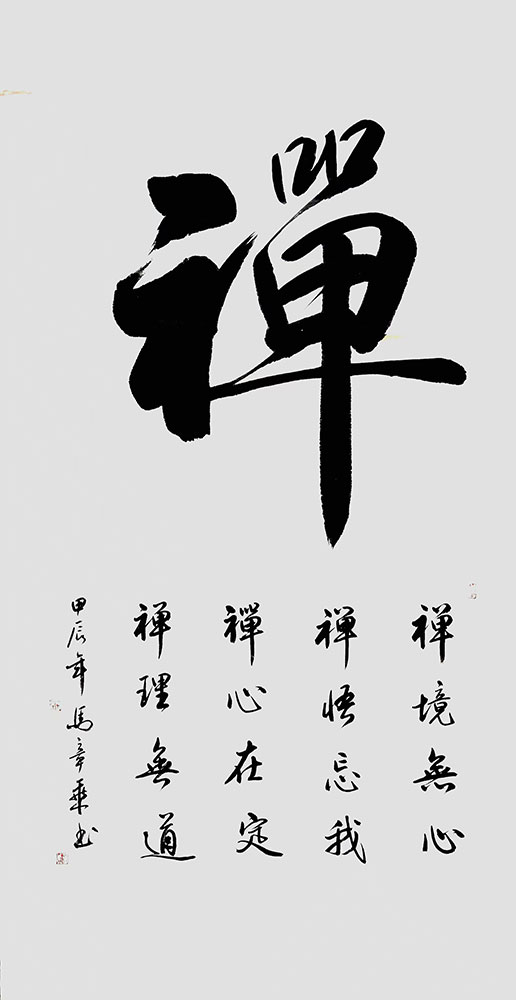 禪
禪境無心
禪悟忘我
禪心在定
禪理無道
甲辰年馬章乘書